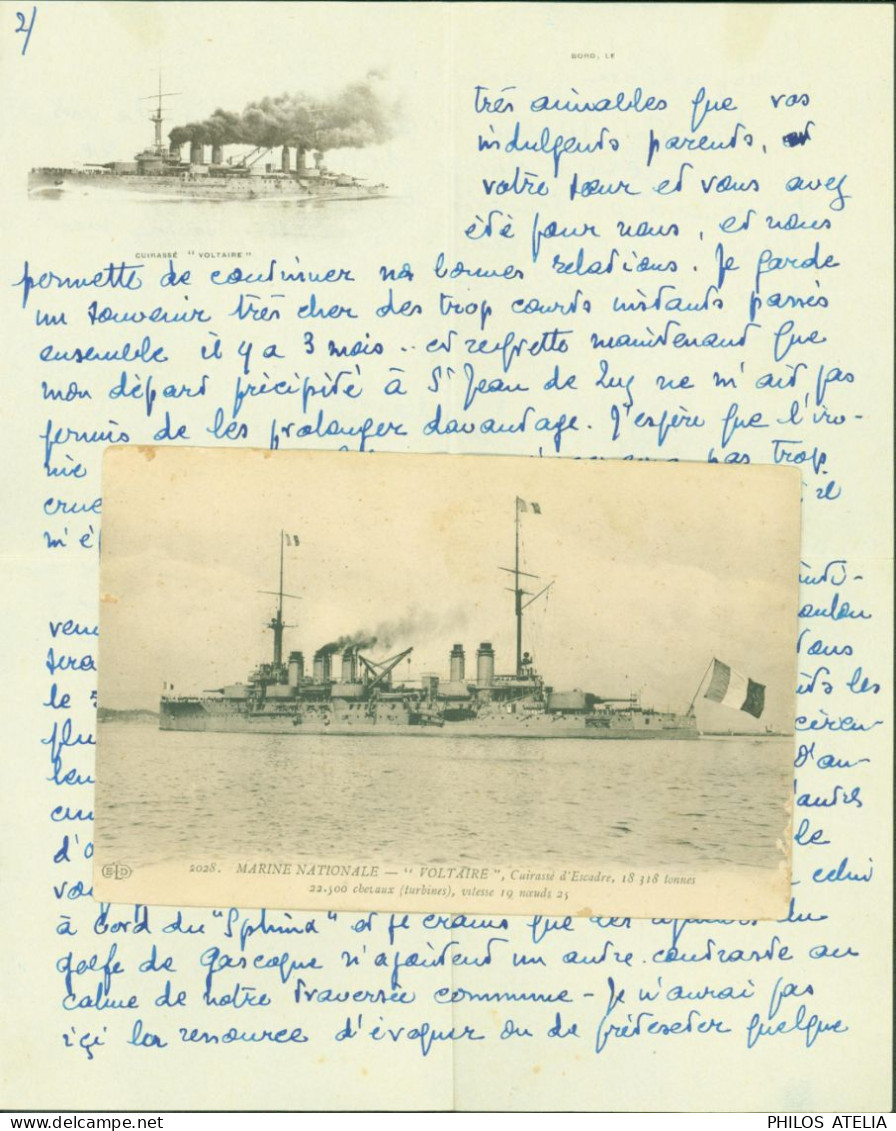 2/
BORD, LE
très aimables que vos
indulgents parents, et
votre sœur et vous avez
été pour nous, et nous
CUIRASSÉ "VOLTAIRE"
permette de continuer nos bonnes relations. Je garde
un souvenir très cher des trop courts instants passés
ensemble il y a 3 mois .. et regrette maintenant que
mon départ précipité à St Jean de Luz ne m'ait pas
permis de les prolonger davantage. J'espère que l'iro-
nie pas trop
crue il
m'é
ven oulon
sera
le les
plus
leu D'au-
d'autres
d'o le
vou celui
2028. MARINE NATIONALE — "VOLTAIRE", Cuirassé d'Escadre, 18 318 tonnes
22.500 chevaux (turbines), vitesse 19 nœuds 25
ELD
à bord du "Sphinx" et je crains que du
golfe de Gascogne n'ajoutent un autre contraste au
calme de notre traversée commune - Je n'aurai pas
içi la ressource d'évoquer ou de prétexter quelque
PHILOS ATELIA